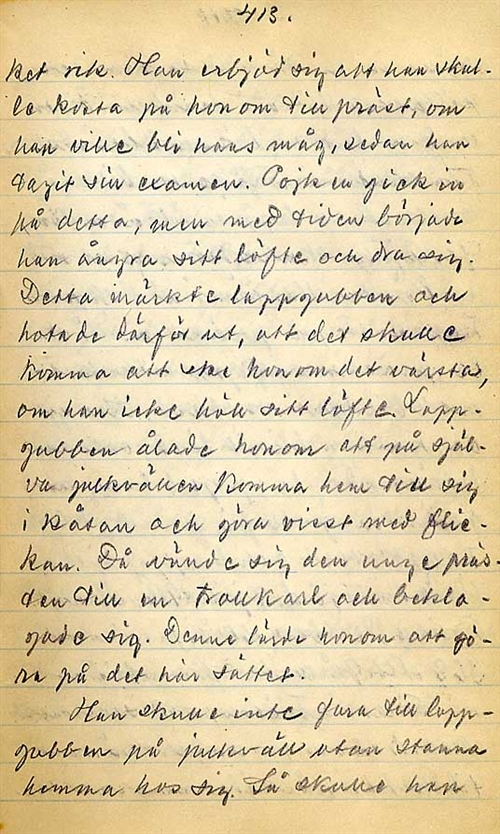 413.
ket rik. Han erbjöd sig att han skul-
le kosta på honom till präst, om
han ville bli hans måg, sedan han
tagit sin examen. Pojken gick in
på detta, men med tiden började
han ångra sitt löfte och dra sig.
Detta märkte lappgubben och
hotade därför ut, att det skulle
komma att ske honom det värsta,
om han icke höll sitt löfte. Lapp-
gubben ålade honom att på själ-
va julkvällen komma hem till sig
i kåtan och göra visst med flic-
kan. Då vände sig den unge präs-
ten till en trollkarl och bekla-
gade sig. Denne lärde honom att gö-
ra på det här sättet.
Han skulle inte fara till lapp-
gubben på julkväll utan stanna
hemma hos sig. Så skulle han